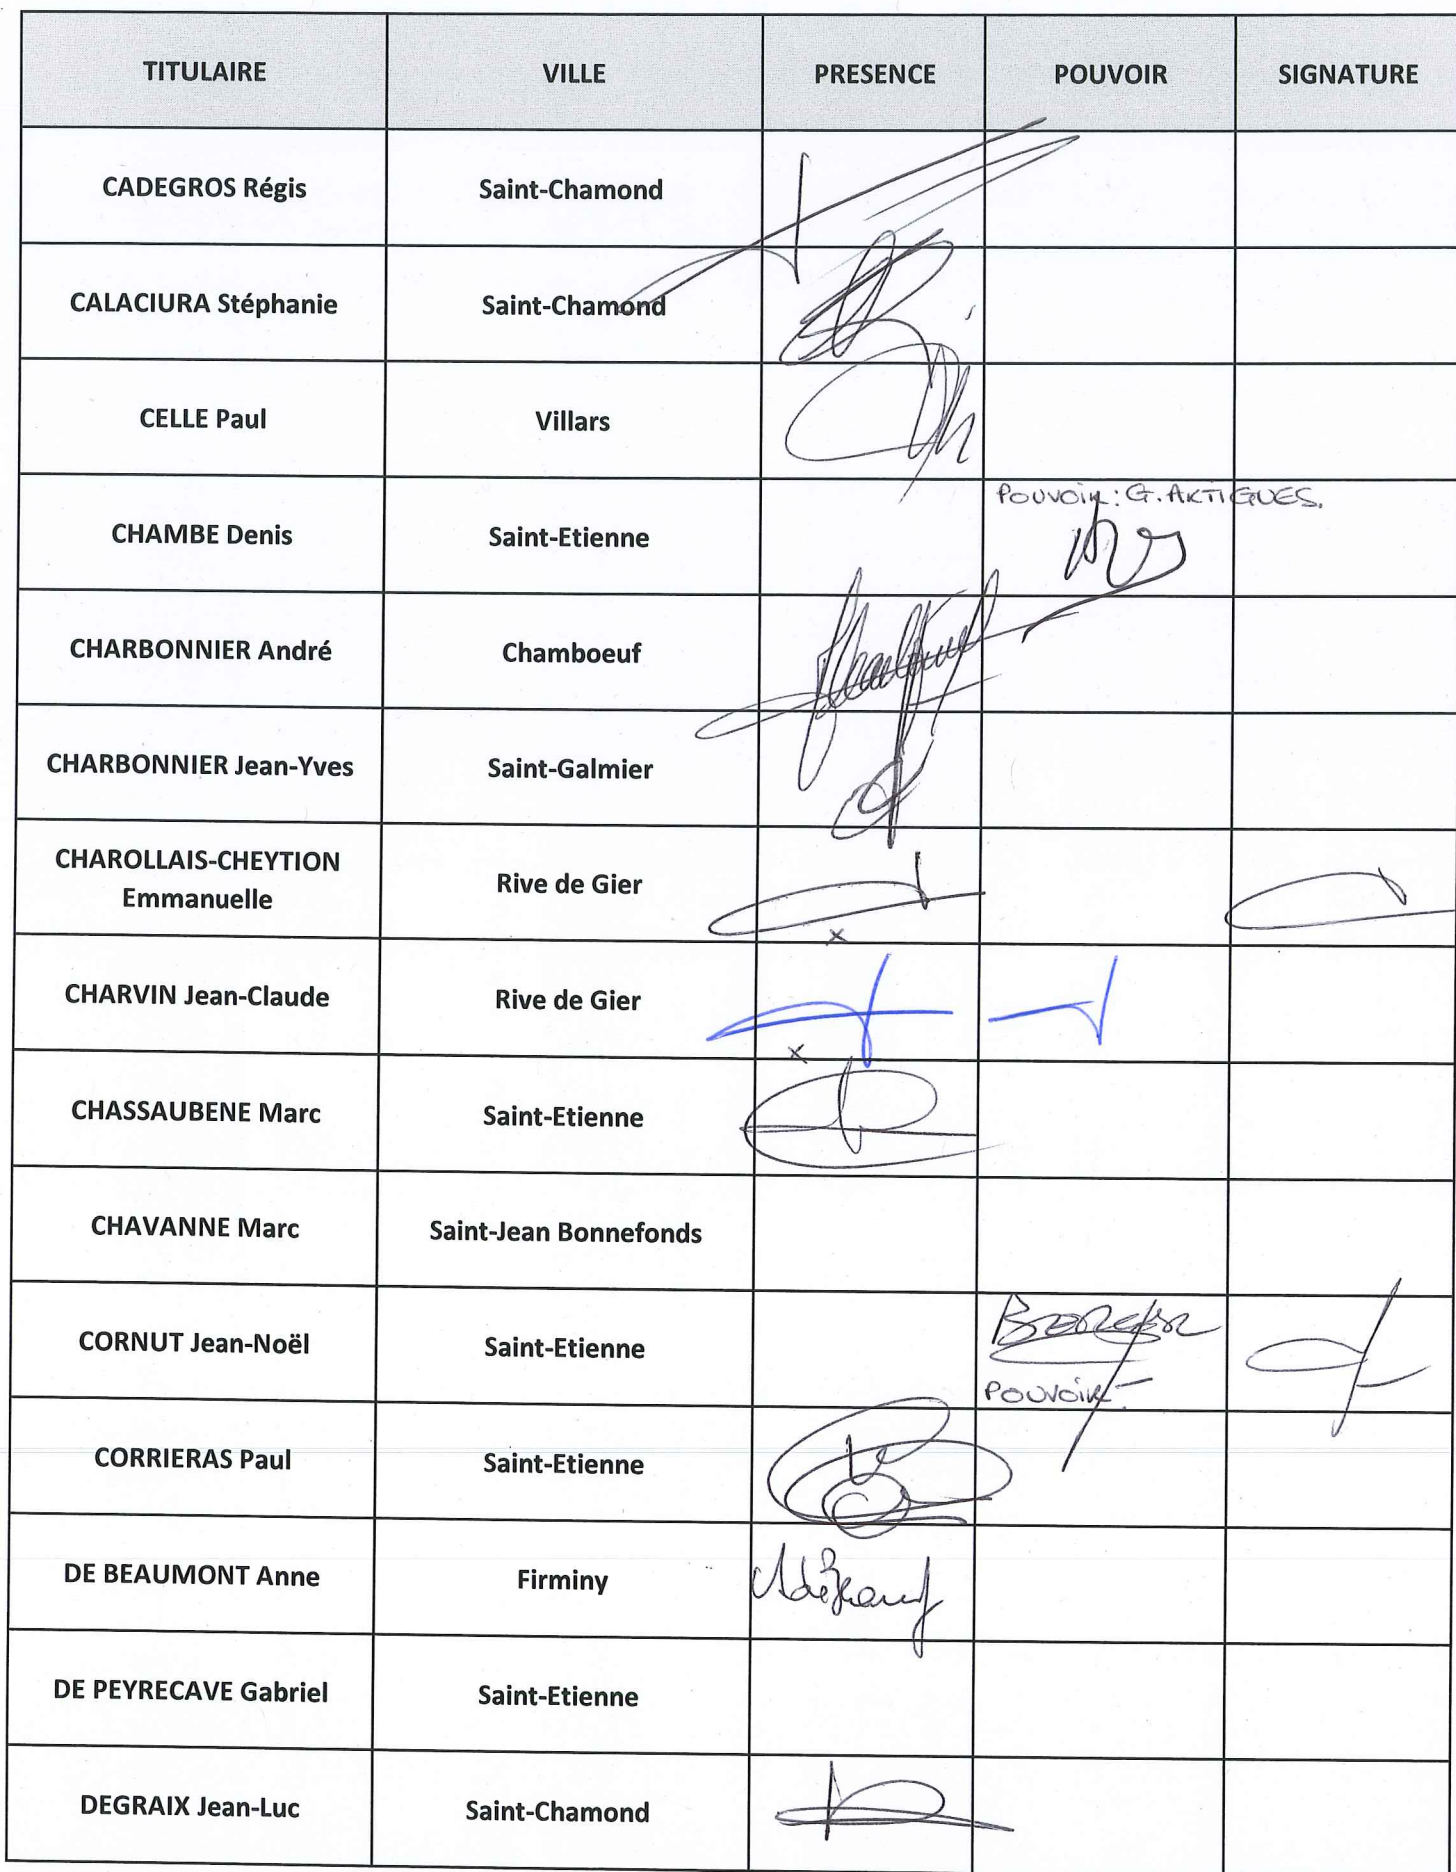 TITULAIRE VILLE PRESENCE POUVOIR SIGNATURE
CADEGROS Régis Saint-Chamond
CALACIURA Stéphanie Saint-Chamond
CELLE Paul Villars
POUVOIR: G. ARTIGUES.
CHAMBE Denis Saint-Etienne
CHARBONNIER André Chamboeuf
CHARBONNIER Jean-Yves Saint-Galmier
CHAROLLAIS-CHEYTION
Emmanuelle Rive de Gier
x
CHARVIN Jean-Claude Rive de Gier
x
CHASSAUBENE Marc Saint-Etienne
CHAVANNE Marc Saint-Jean Bonnefonds
BERGER
CORNUT Jean-Noël Saint-Etienne
POUVOIR
CORRIERAS Paul Saint-Etienne
DE BEAUMONT Anne Firminy
DE PEYRECAVE Gabriel Saint-Etienne
DEGRAIX Jean-Luc Saint-Chamond